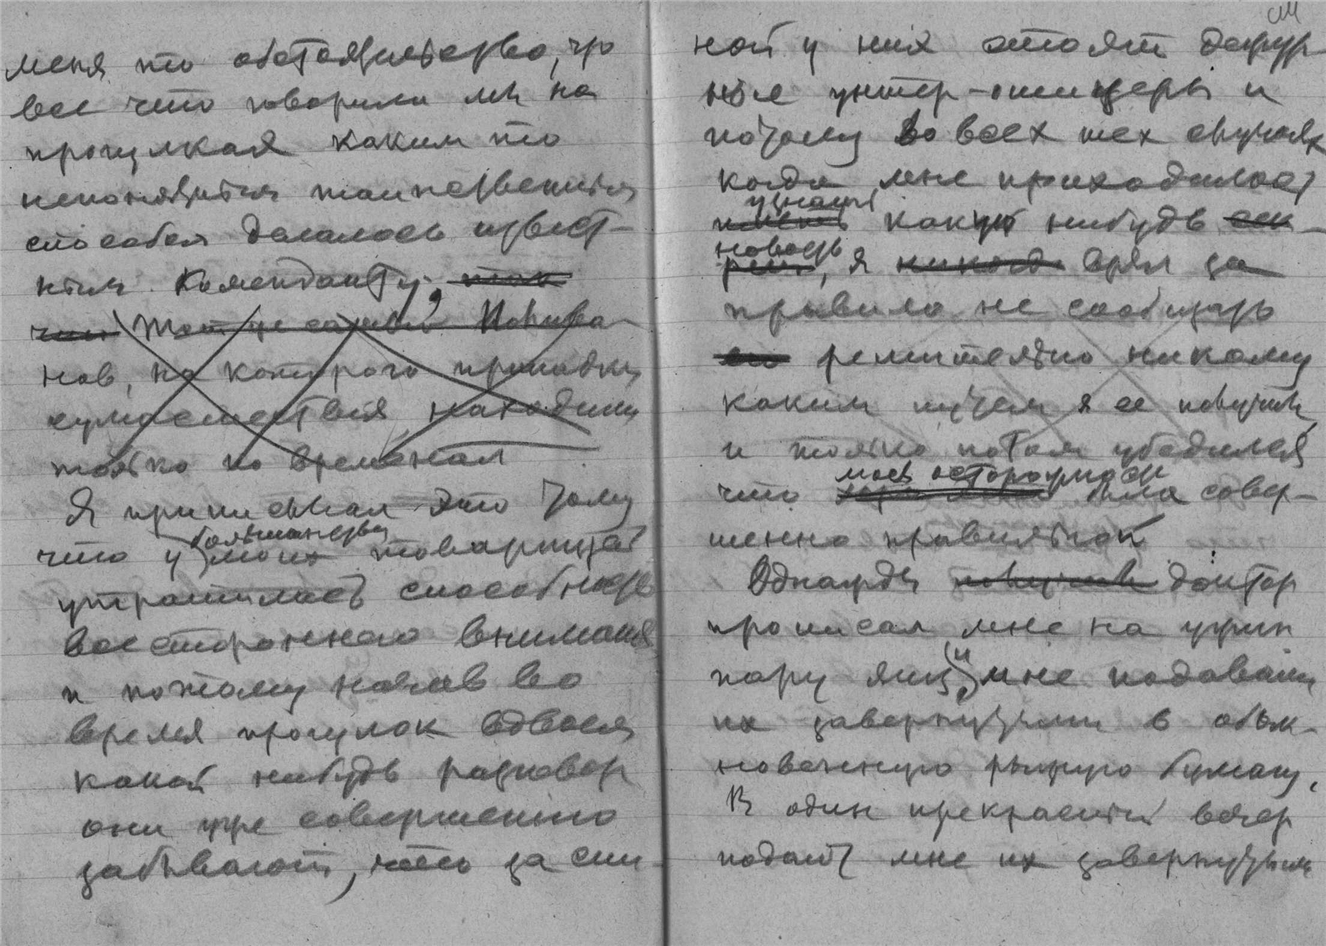 меня то обстоятельство, что
все что говорили мы на
прогулках каким то
непонятным таинственным
способом делалось извест-
ным Коменданту,
Тот же самый Поливанов
нов, на которого припадки
сумасшествия находили
только по временам
Я приписывал это тому
что у большинства моих товарищей
утратилась способность
всестороннего внимания
и потому начав во
время прогулок вдвоем
какой нибудь разговор
они уже совершенно
забывают, что за спи-
ной у них стоят дежур-
ные унтер-офицеры и
потому во всех тех случаях
когда мне приходилось
узнать какую нибудь
новость, я никогда взял за
правило не сообщать
ее решительно никому
каким путем я ее получил,
и только потом убедился
что моя осторожность была совер-
шенно правильной
Однажды получив доктор
прописал мне на ужин
пару яиц и мне подавали
их завернутыми в обык-
новенную рыжую бумагу.
В один прекрасный вечер
подают мне их завернутыми